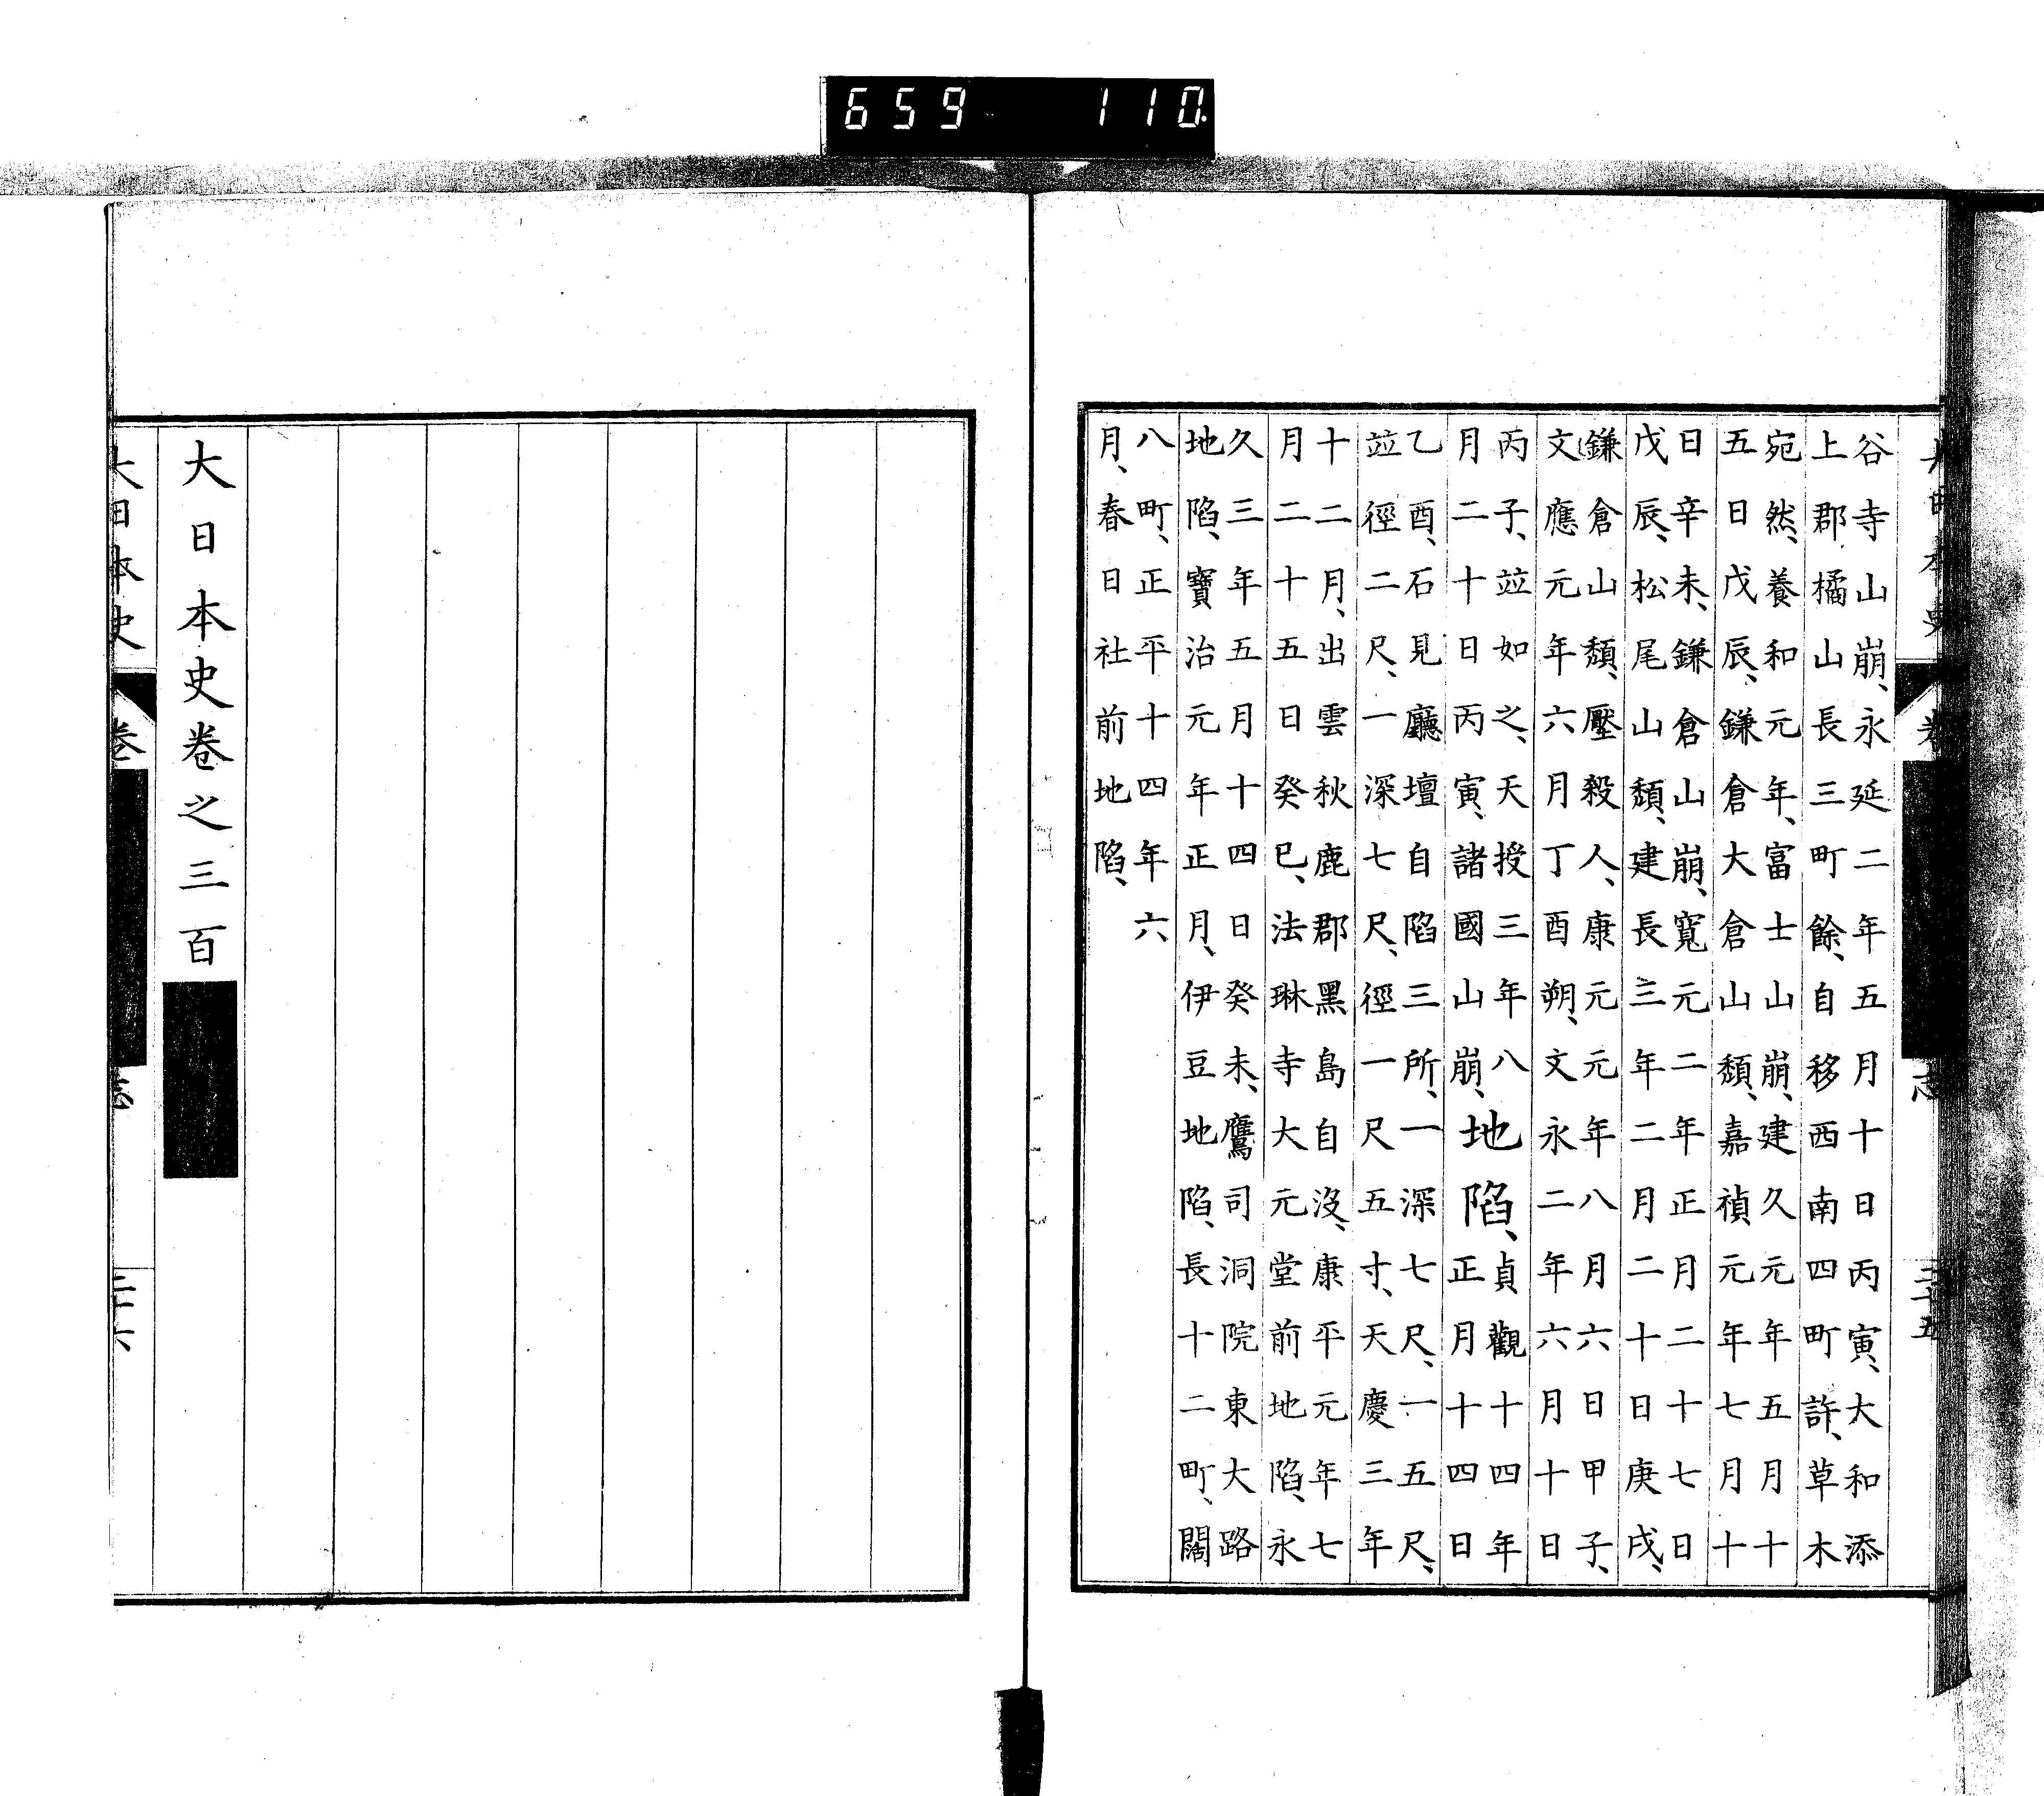 659 110
大日本史 卷 志 二十五
谷寺山崩、永延二年五月十日丙寅、大和添
上郡橘山長三町餘、自移西南四町許、草木
宛然、養和元年、富士山崩、建久元年五月十
五日戊辰、鎌倉大倉山頽、嘉禎元年七月十
日辛未、鎌倉山崩、寬元二年正月二十七日
戊辰、松尾山頽、建長三年二月二十日庚戌、
鎌倉山頽、壓殺人、康元元年八月六日甲子、
文應元年六月丁酉朔、文永二年六月十日
丙子、竝如之、天授三年八
月二十日丙寅、諸國山崩、
地陷、
貞觀十四年
正月十四日
乙酉、石見廳壇自陷三所、一深七尺、一五尺、
竝徑二尺、一深七尺、徑一尺五寸、天慶三年
十二月、出雲秋鹿郡黑島自沒、康平元年七
月二十五日癸巳、法琳寺大元堂前地陷、永
久三年五月十四日癸未、鷹司洞院東大路
地陷、寶治元年正月、伊豆地陷、長十二町、闊
八町、正平十四年六
月、春日社前地陷、
大日本史卷之三百
大日本史 卷 志 二十六